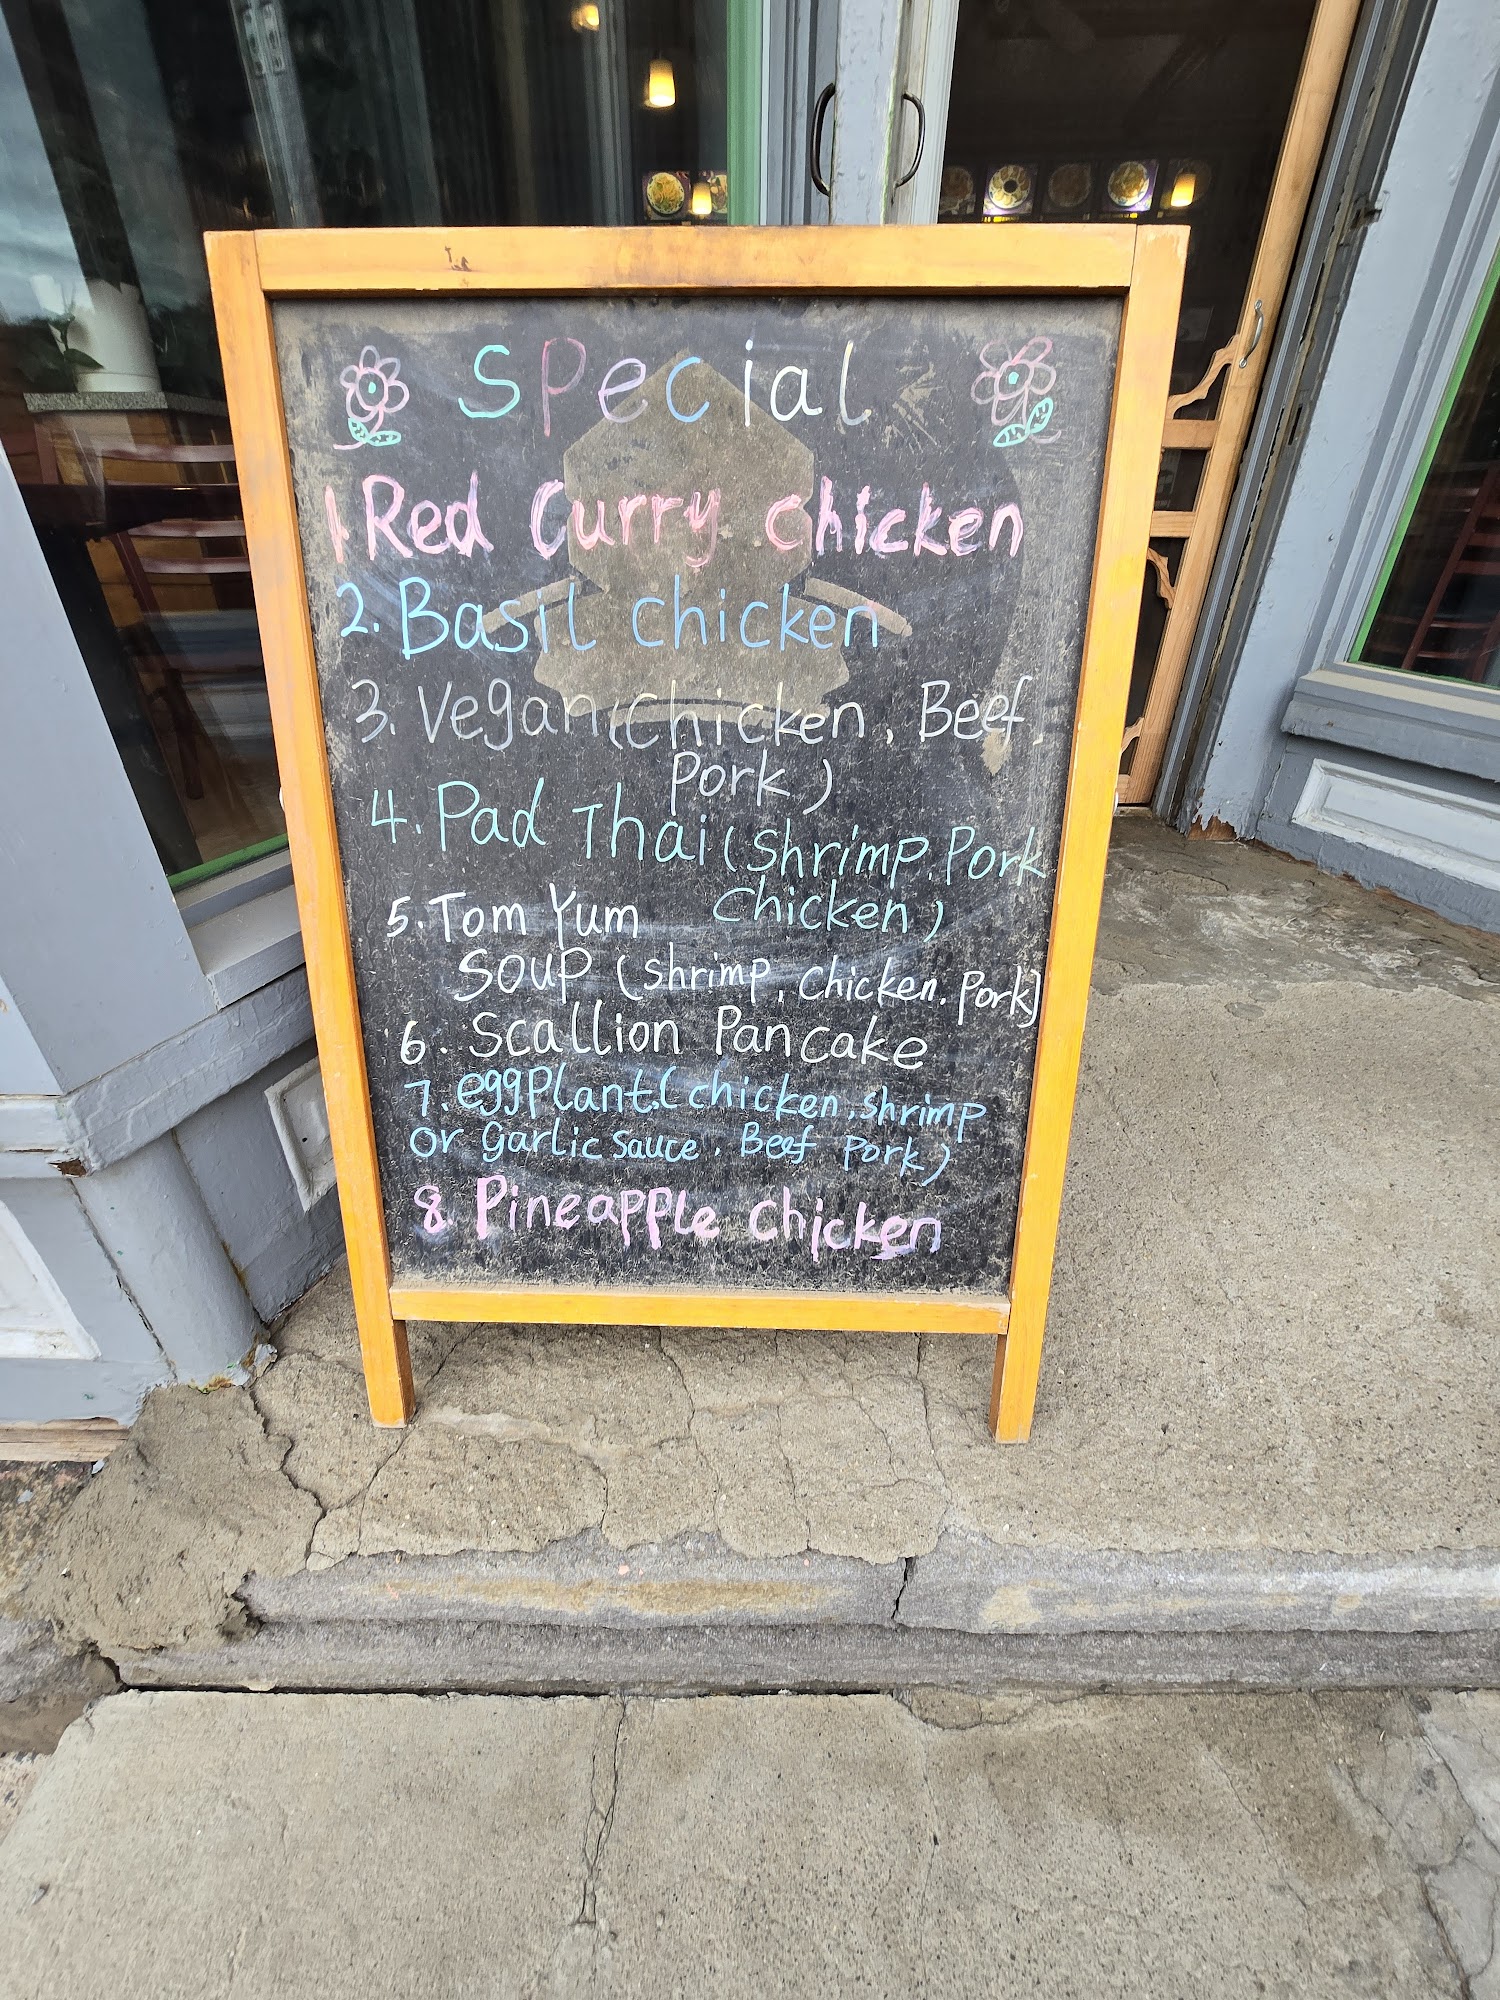 Special
1 Red Curry Chicken
2. Basil chicken
3. Vegan (Chicken, Beef,
Pork)
4. Pad Thai (Shrimp, Pork
Chicken)
5. Tom Yum
Soup (shrimp, chicken, Pork)
6. Scallion Pancake
7. eggPlant. (chicken, shrimp
or Garlic Sauce, Beef Pork)
8. Pineapple Chicken